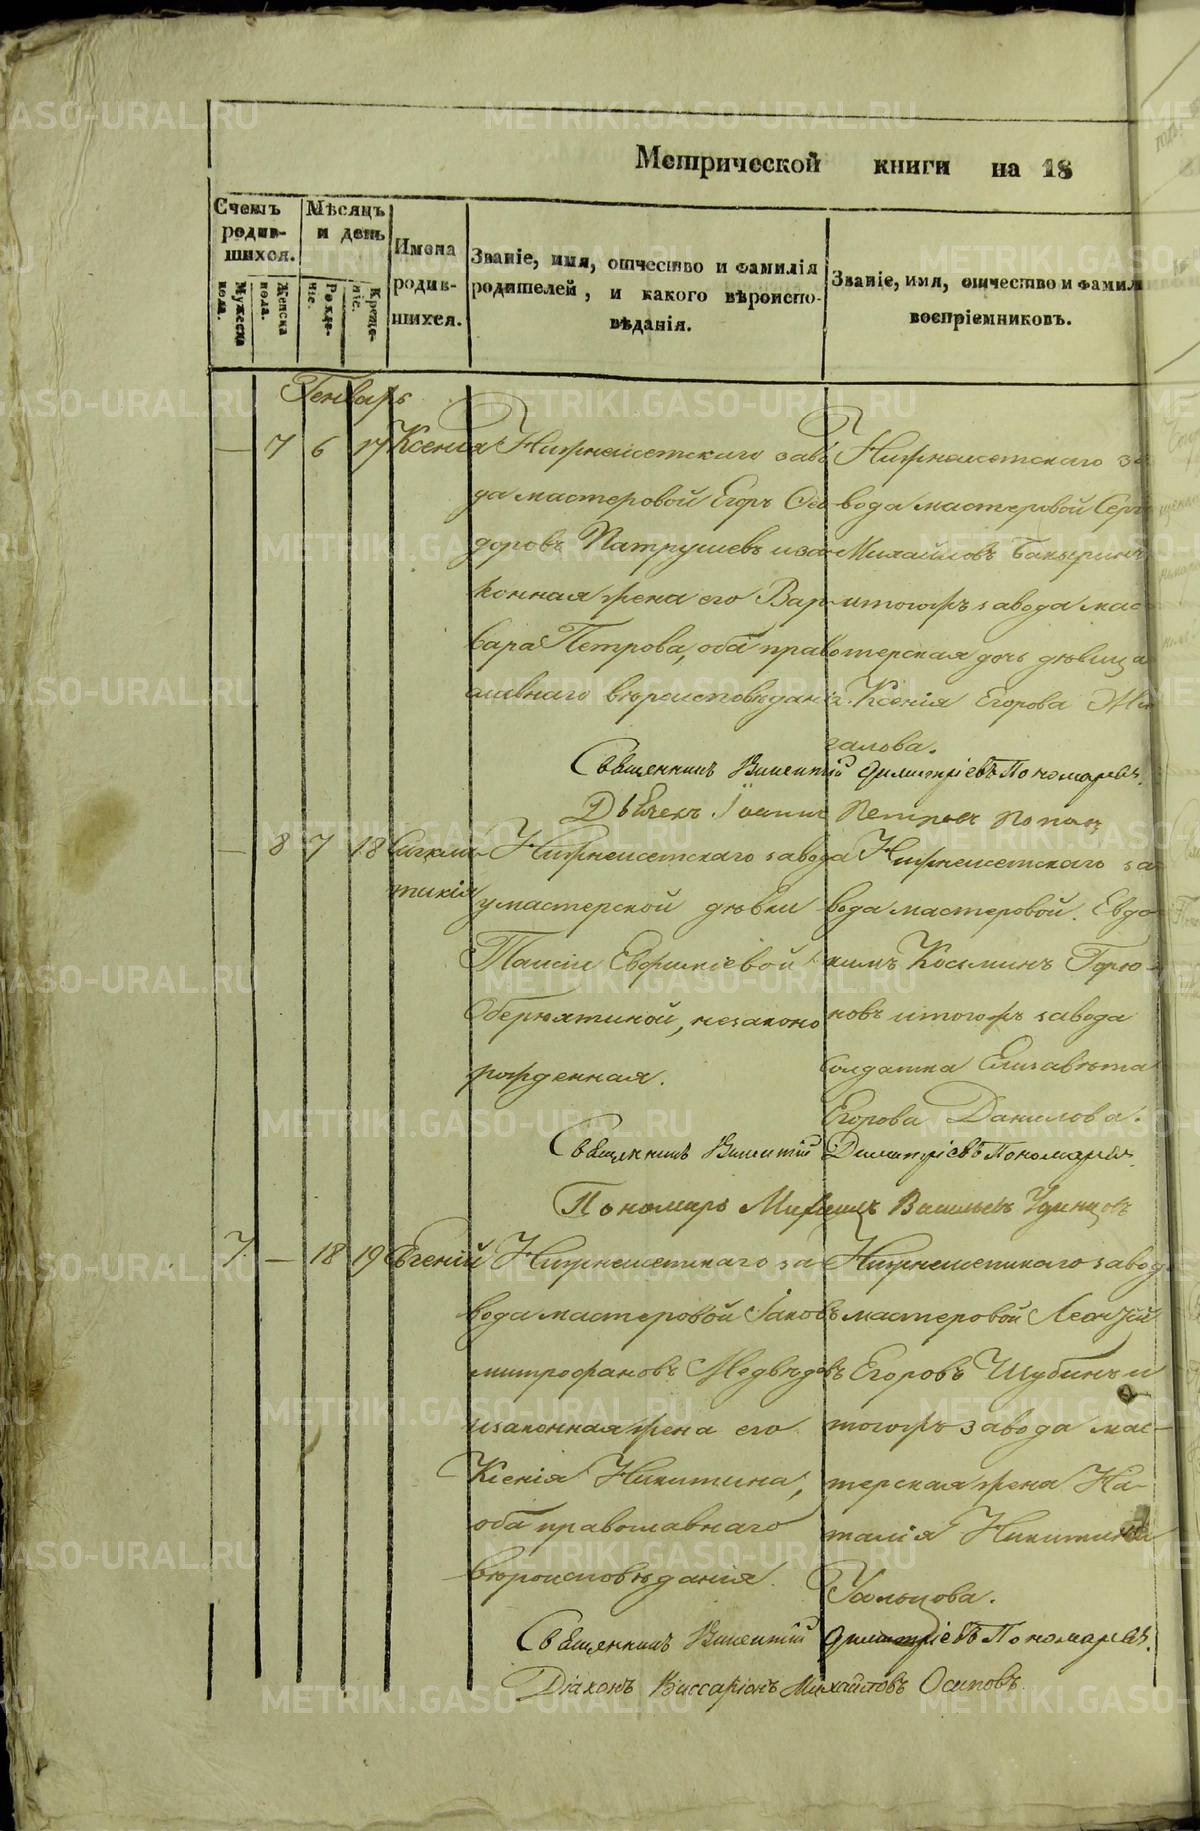 Метрической книги на 18
Счетъ родив- шихся.
Мужеска пола.
Женска пола.
Мѣсяцъ и день
Рожде- ніе.
Креще- ніе.
Имена родив- шихся.
Званіе, имя, отчество и фамилія родителей, и какого вѣроиспо- вѣданія.
Званіе, имя, отчество и фамил воспріемниковъ.
Генварь
— 7 6 17 Ксенія
Нижнеисетскаго заво
да мастеровой Егоръ Ѳео
доровъ Патрушевъ и за
конная жена его Вар-
вара Петрова, оба право
славнаго вѣроисповѣданія.
Нижнеисетскаго за
вода мастеровой Серг
Михайловъ
и тогожъ завода мас
терская дочь дѣвица
Ксенія Егорова Жи
галова.
Священникъ Викентій Димитріевъ Пономаревъ.
Дьячекъ Іоаннъ Петровъ Поповъ
— 8 7 18 Сигкли-
тикія
Нижнеисетскаго завода
у мастерской дѣвки
Таисіи Евфиміевой
Оберюхтиной, незаконо
рожденная.
Нижнеисетскаго за
вода мастеровой Евдо
кимъ Косьминъ Горю-
новъ и тогожъ завода
солдатка Елизавѣта
Егорова Данилова.
Священникъ Викентій Димитріевъ Пономаревъ.
Пономарь Васильевъ Удинцовъ
7. — 18 19 Евгеній
Нижнеисетскаго за
вода мастеровой Іаковъ
Митрофановъ Медвѣдевъ
и законная жена его
Ксенія Никитина,
оба православнаго
вѣроисповѣданія.
Нижнеисетскаго завод
мастеровой Леонтій
Егоровъ Шубинъ и
тогожъ завода мас-
терская жена На-
талія Никитина
Усольцова.
Священникъ Викентій Димитріевъ Пономаревъ.
Діаконъ Виссаріонъ Михайловъ Осиповъ.
METRIKI.GASO-URAL.RU